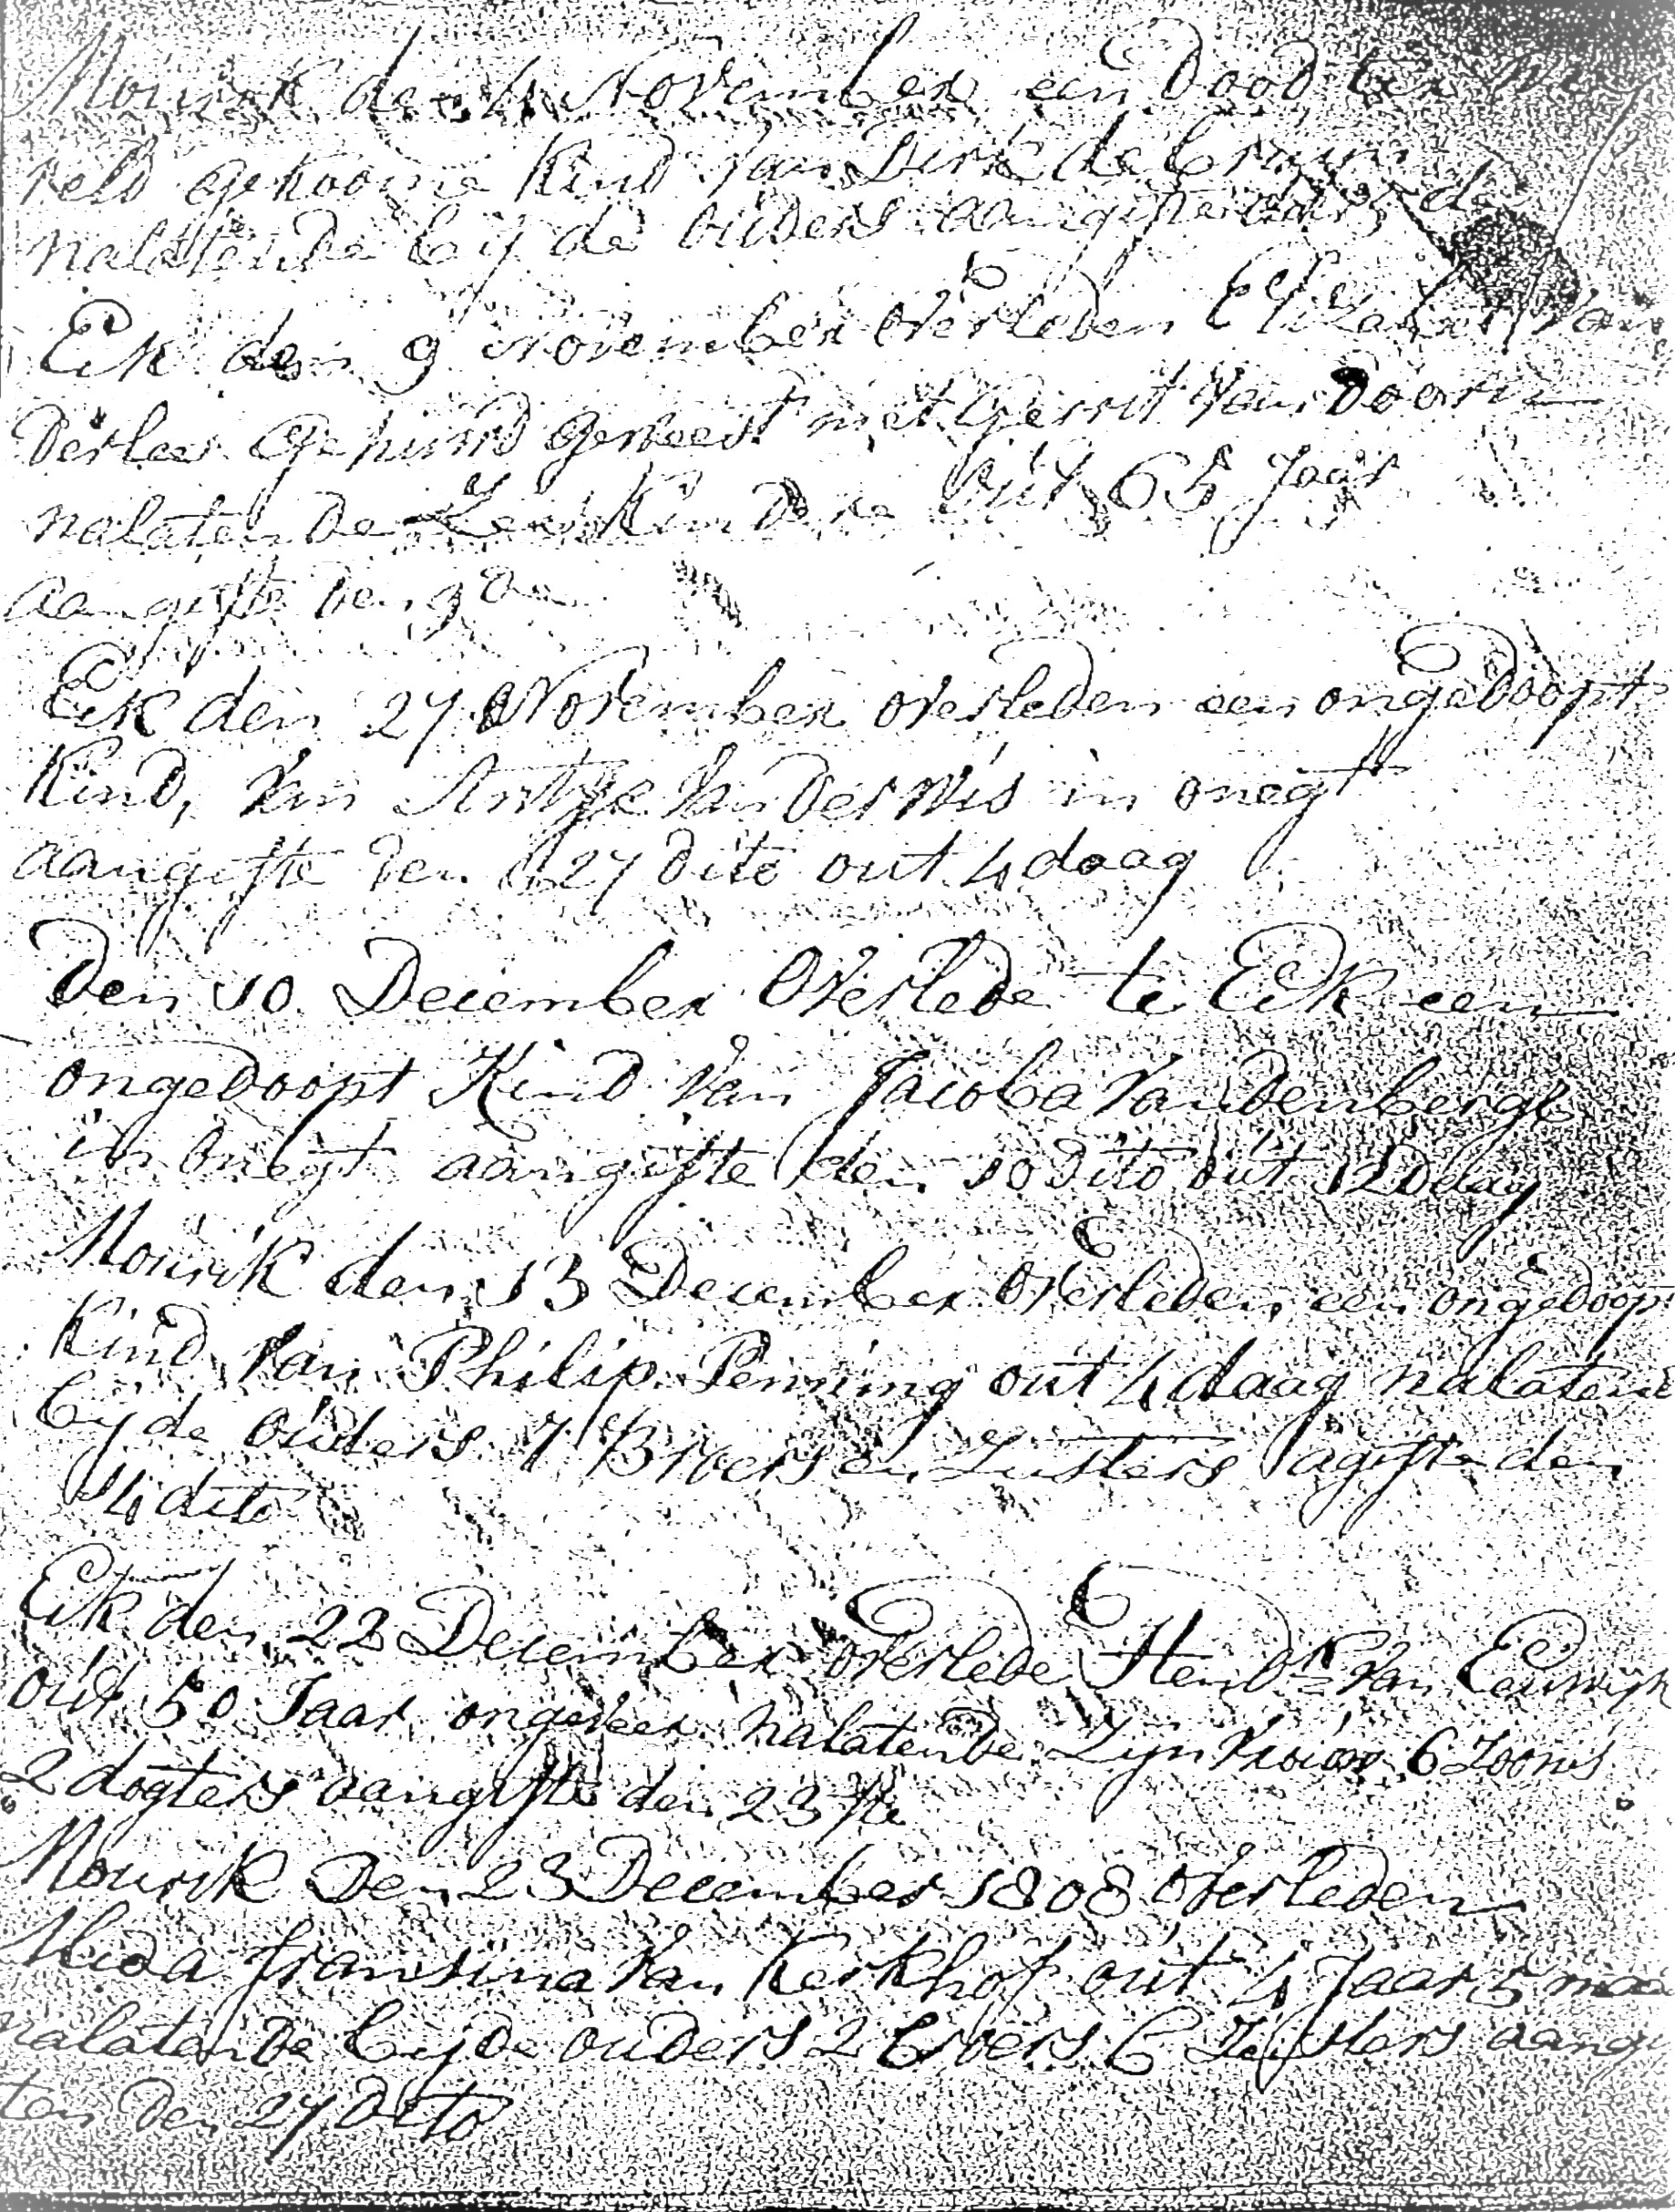 Mourik den 4 November een Dood ter we
reld gekoome Kind van Dirk de Cruin
nalatende byde ouders aangifte den
Eck den 9 November overleden Elizabet van
Derlee Gehuwd geweest met Gerrit van Doorn
nalatende Kindere out 65 Jaar
aangifte den 9de
Eck den 27 November overleden een ongedoopt
Kind, van Antje van Derwis in onegt
aangifte den 27 dito out 4 daag
Den 10 December Overlede te Eck een
ongedoopt Kind van Jacoba Vandenberge
in onegt aangifte den 10 dito out 12 daag
Mourik den 13 December overleden een ongedoop
Kind van Philip Penning out 4 daag nalatend
byde ouders 7 Broers en Zusters agifte den
14 dito
Eck den 22 December overlede Hendk van Eeuwijk
out 50 Jaar ongeveer nalatende Zyn vrouw 6 Zoons
2 dogters aangifte den 23ste
Mourik Den 23 December 1808 overleden
Alida fransina van Kerkhof out 4 Jaar 5 maa
nalatende byde ouders 2 broers 6 Zusters aangi
ten den 27 Dito